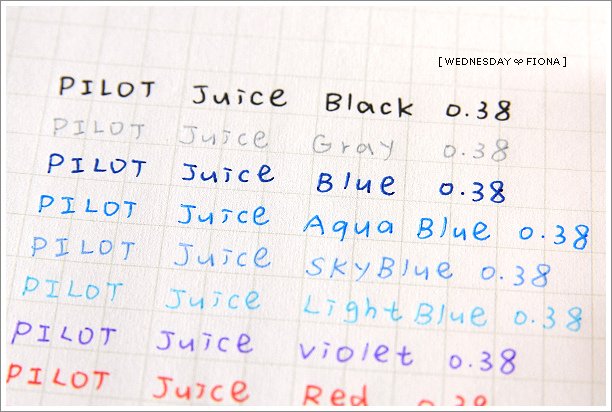 [ WEDNESDAY ∞ FIONA ]
PILOT Juice Black 0.38
PILOT Juice Gray 0.38
PILOT Juice Blue 0.38
PILOT Juice Aqua Blue 0.38
PILOT Juice SkyBlue 0.38
PILOT Juice Light Blue 0.38
PILOT Juice violet 0.38
PILOT Juice Red 0.38